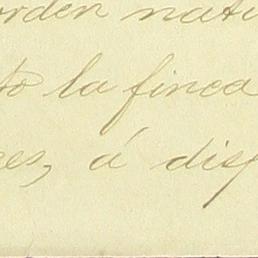 orden nati
to la finca
es, á disp